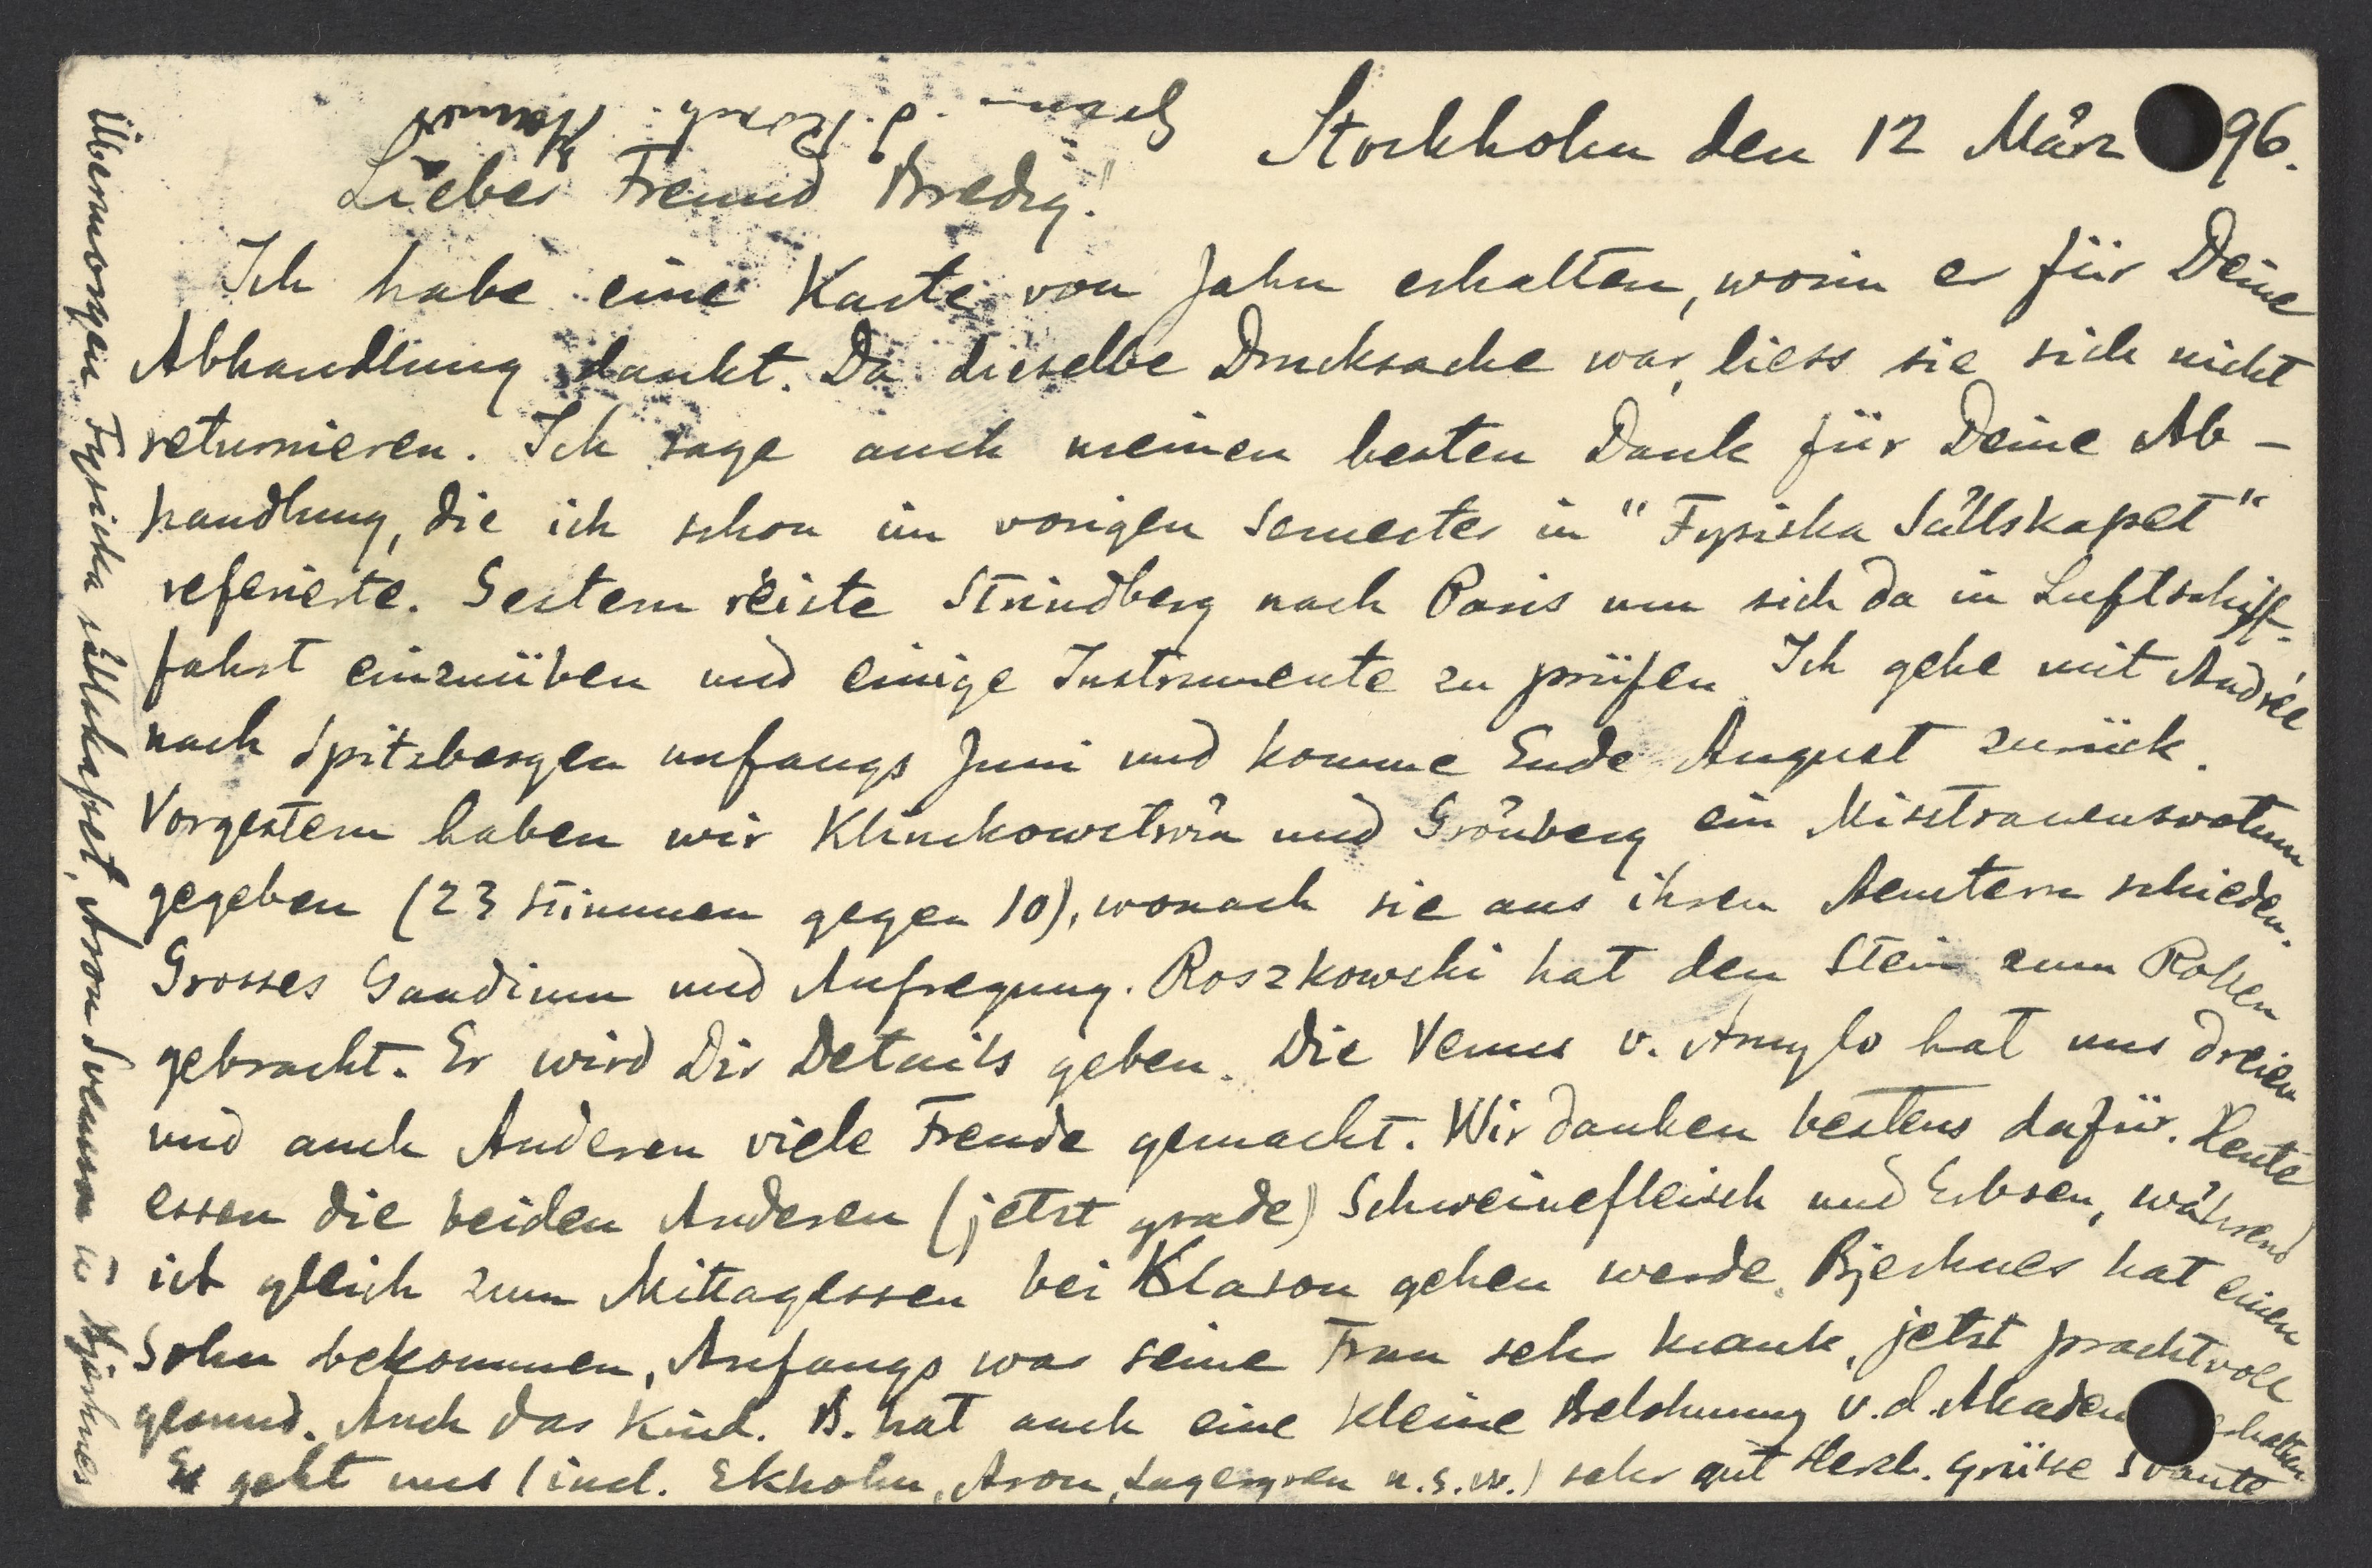 Stockholm den 12 März 96.
Lieber Freund Bredig!
Ich habe eine Karte von Jahn erhalten, worin er für Deine
Abhandlung dankt. Da dieselbe Drucksache war, liess sie sich nicht
returnieren. Ich sage auch meinen besten Dank für Deine Ab-
handlung, die ich schon im vorigen Semester in "Fysiska Sällskapet"
referierte. Gestern reiste Strindberg nach Paris um sich da in Luftschiff-
fahrt einzuüben und einige Instrumente zu prüfen. Ich gehe mit Andrée
nach Spitzbergen anfangs Juni und komme Ende August zurück.
Vorgestern haben wir Klinckowström und Grönberg ein Misstrauensvotum
gegeben (23 Stimmen gegen 10), wonach sie aus ihren Aemtern schieden.
Grosses Gaudium und Aufregung. Roszkowski hat den Stein zum Rollen
gebracht. Er wird Dir Details geben. Die Venus v. Amylo hat uns dreien
und auch Anderen viele Freude gemacht. Wir danken bestens dafür. Heute
essen die beiden Anderen (jetzt grade) Schweinefleisch und Erbsen, während
ich gleich zum Mittagessen bei Klason gehen werde. Bjerknes hat einen
Sohn bekommen, Anfangs war seine Frau sehr krank, jetzt prachtvoll
gesund. Auch das Kind. B. hat auch eine kleine Belohnung v. d. Akadem erhalten
Es geht uns (incl. Ekholm, Aron, Lagergren u.s.w.) sehr gut Herzl. Grüsse Svante
Übermorgen Fysiska sällskapet, Aron Svensson u Bjerknes